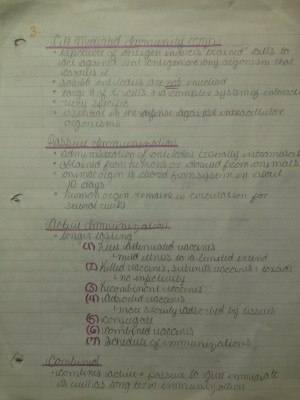 3.
Cell Mediated Immunity (CMI)
• exposure of antigen induces "trained" cells to
act against that antigen or any organism that
carries it
• soluble antibodies are not involved
• large # of T cells + a complex system of
• very specific
• critical in the defense against intracellular
organisms
Passive Immunization
• administration of antibodies (usually intramuscular
• obtained from humans or derived from animals
• animal origin is cleared from system in about
10 days
• human origin remains in circulation for
several weeks
Active Immunization
• longer lasting
(1) Live attenuated vaccines
↳ mild illness to a limited extent
(2) Killed vaccines, subunit vaccines + toxoids
↳ no infectivity
(3) Recombinant vaccines
(4) Adsorbed vaccines
↳ more slowly adsorbed by tissues
(5) Conjugate
(6) Combined vaccines
(7) Schedule of immunizations
Combined
• combines active + passive to give immediate
as well as long term immunization